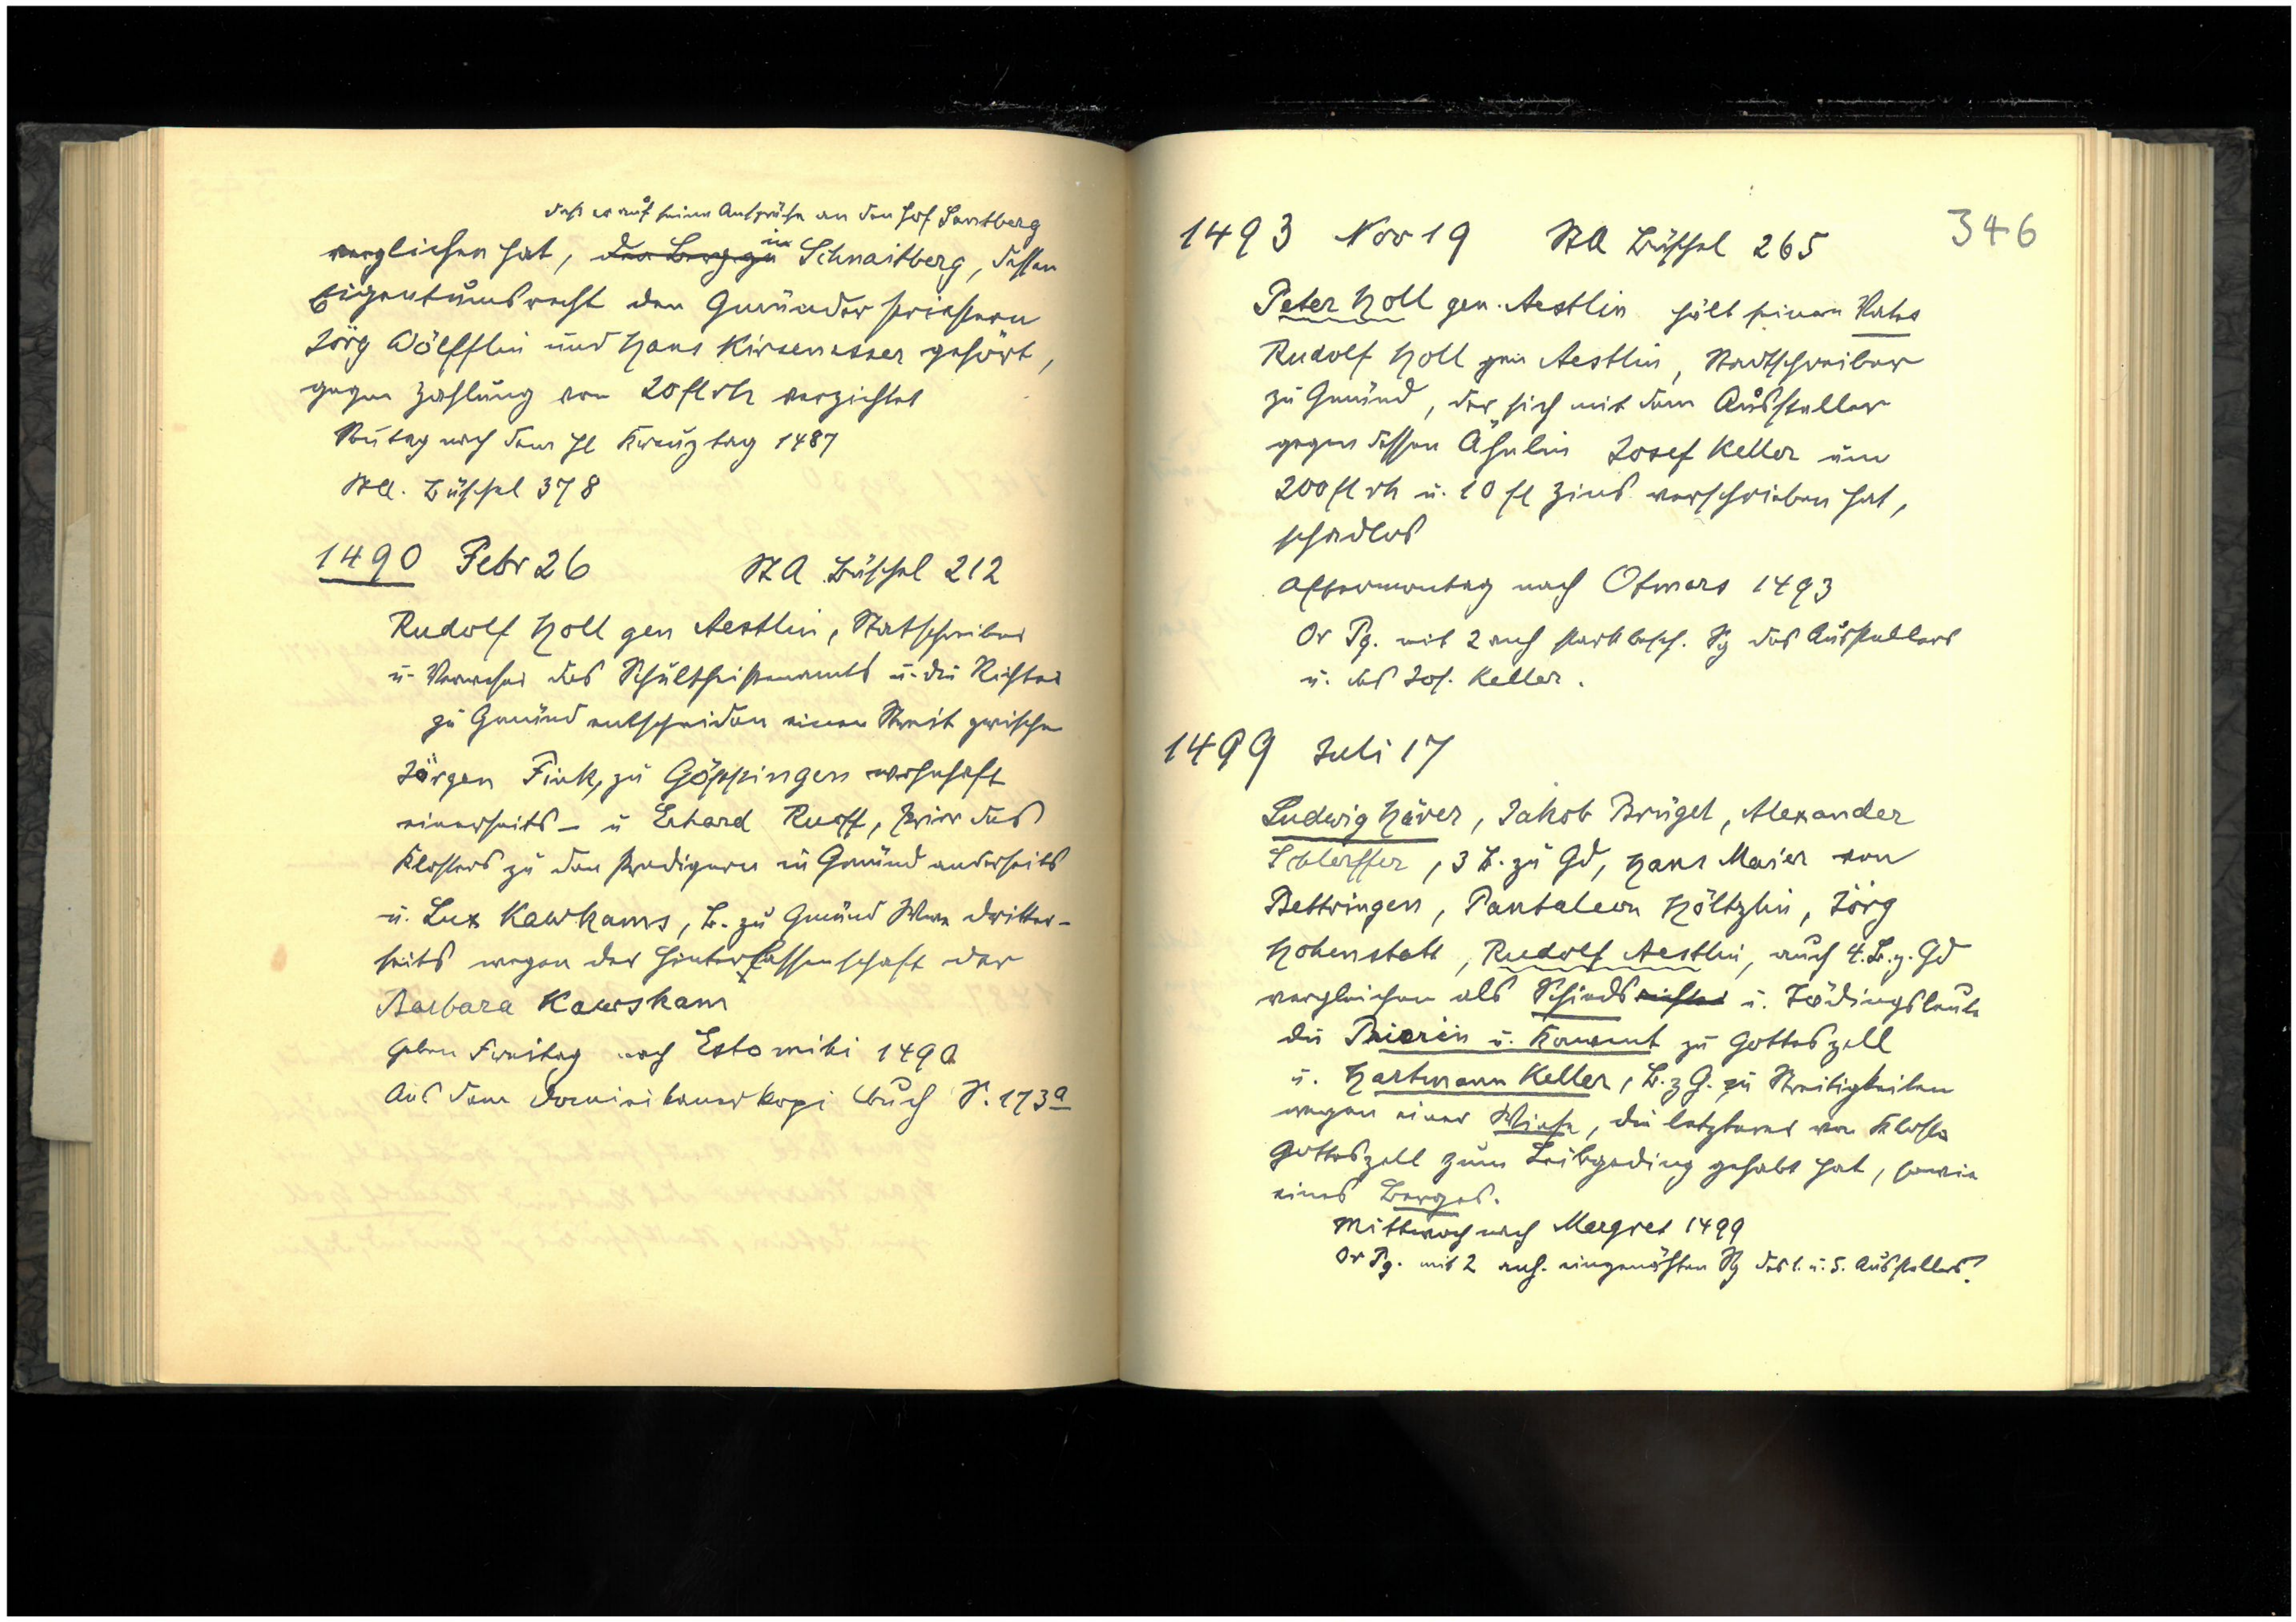 daß er auf seine Ansprüche an den Hof Santberg
verglichen hat, den Berg zu im Schnaitberg, dessen
Eigentumsrecht den Gmünder Priestern
Jörg Wölfflin und Hans Kirsenesser gehört,
gegen Zahlung von 20 fl rh verzichtet
nach dem hl Kreuztag 1487
StA. Büschel 378
1490 Febr 26 StA Büschel 212
Rudolf Holl gen Aestlin, Statschreiber
u. Verweser des Schultheißenamts u. die Richter
zu Gmünd entscheiden einen Streit zwischen
Jörgen Fink, zu Göppingen wohnhaft
einerseits – u Erhard Ruoff, Prior des
Klosters zu den Predigern in Gmünd anderseits
u. Lux Kawkams, B. zu Gmünd dritter-
seits wegen der Hinterlassenschaft der
Barbara Kawskam
Geben Freitag nach Estomihi 1490
Aus dem Dominikanerkopi buch S. 173a
346
1493 Nov 19 StA Büschel 265
Peter Holl gen. Aestlin hält seinen Vater
Rudolf Holl gen Aestlin, Stadtschreiber
zu Gmünd, der sich mit dem Aussteller
gegen dessen Ähnlin Josef Keller um
200 fl rh u. 10 fl Zins verschrieben hat,
schadlos
Aftermontag nach Otmars 1493
Or Pg. mit 2 anh stark besch. Sg des Ausstellers
u. des Jos. Keller.
1499 Juli 17
Ludwig Häver, Jakob Brügel, Alexander
Schlerffer, 3 B. zu Gd, Hans Maier von
Bettringen, Pantaleon Höltzlin, Jörg
Hohenstatt, Rudolf Aestlin, auch 4. B. z. Gd
vergleichen als Schiedsrichter u. Tädingsleute
die Priorin u. Konvent zu Gotteszell
u. Hartmann Keller, B. z G. zu Streitigkeiten
wegen einer Wiese, die letzterer von Kloster
Gotteszell zum Leibgeding gehabt hat, sowie
eines Berges.
Mittwoch nach Margret 1499
Or Pg. mit 2 anh. eingenähten Sg des 1. u. 5. Ausstellers?